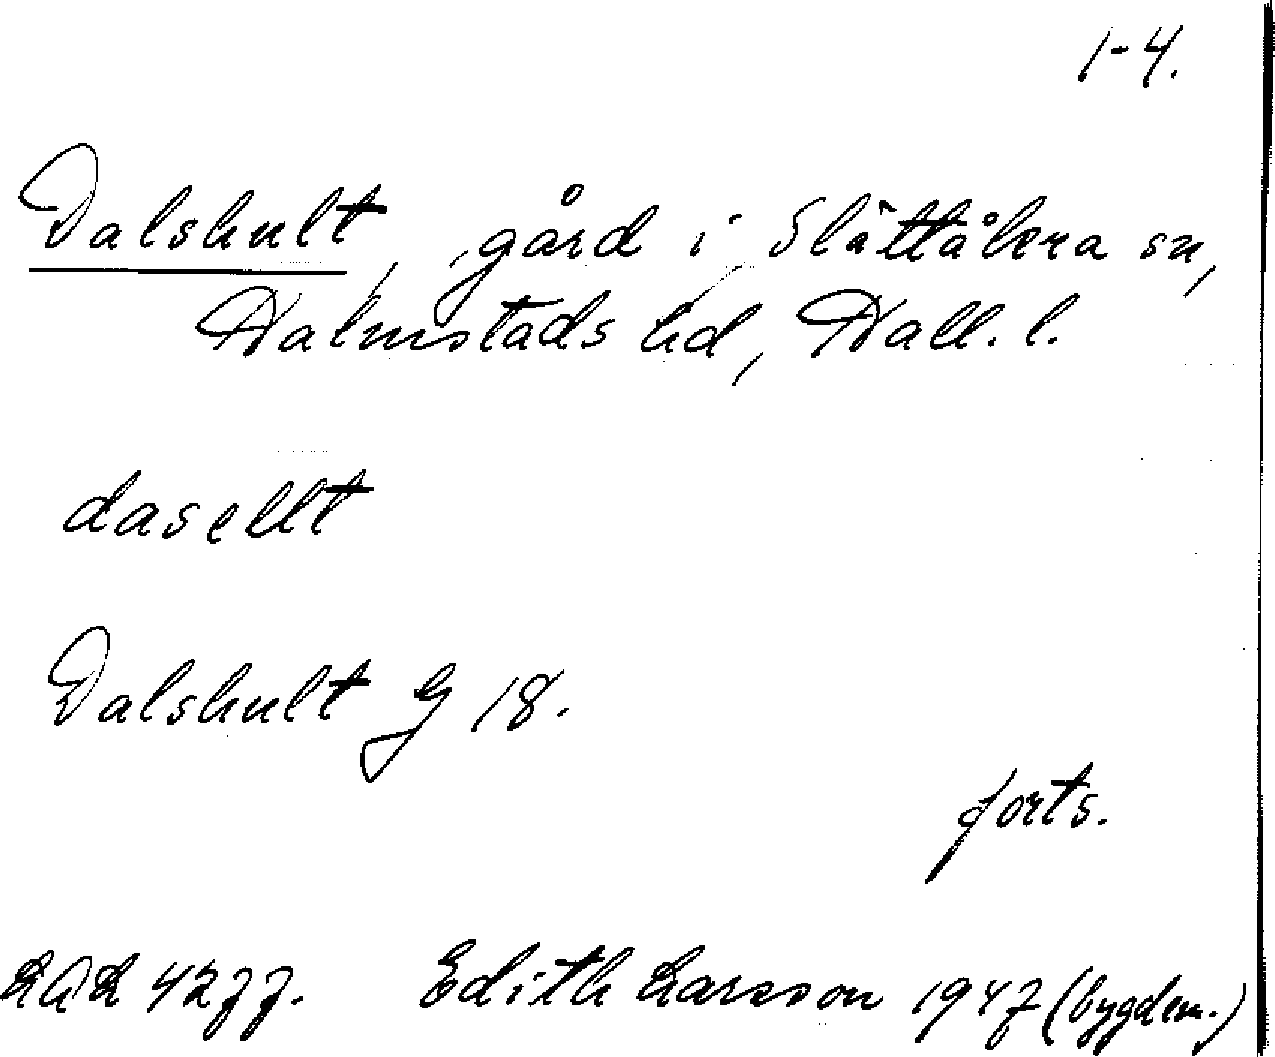 1-4.
Dalshult, gård i Slättåkra sn,
Halmstads hd, Hall. l.
dasellt
Dalshult G 18.
forts.
4277. Edith Larsson 1947 (bygdem.)